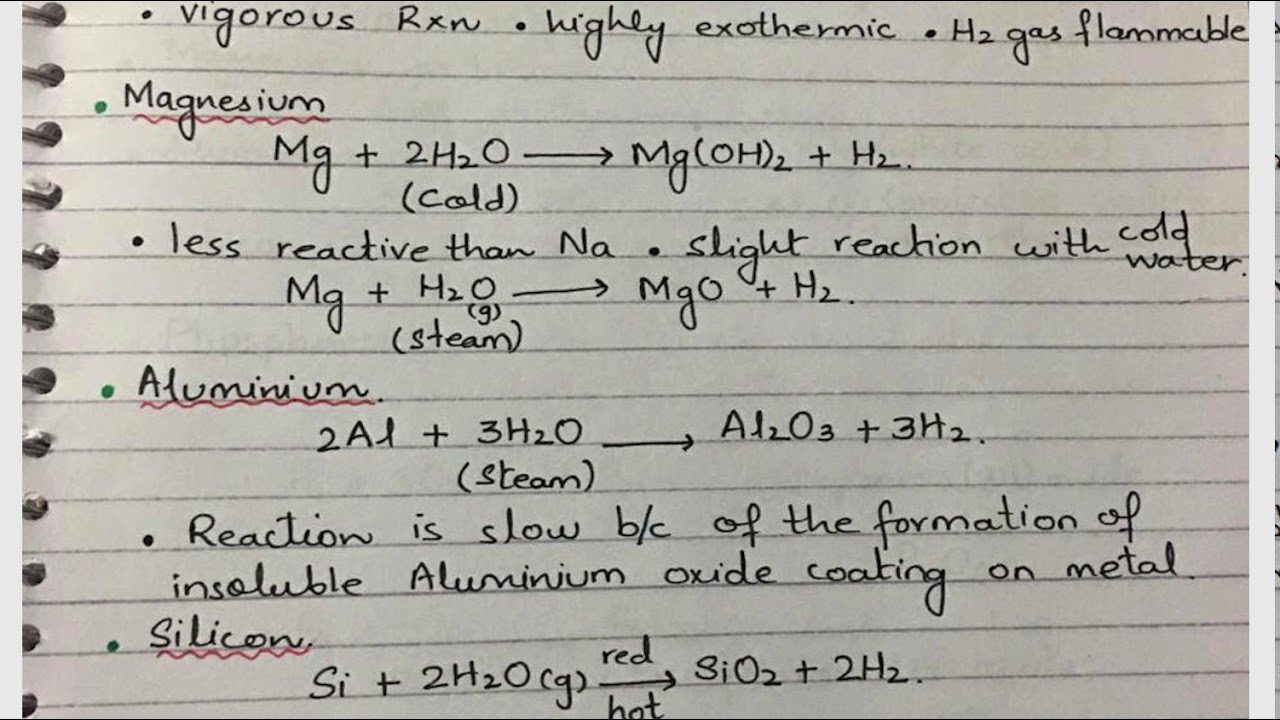 • vigorous Rxn • highly exothermic • H₂ gas flammable
• Magnesium
Mg + 2H₂O ⟶ Mg(OH)₂ + H₂.
(Cold)
• less reactive than Na • slight reaction with cold water.
Mg + H₂O(g) ⟶ MgO + H₂.
(steam)
• Aluminium.
2Al + 3H₂O ⟶ Al₂O₃ + 3H₂.
(steam)
• Reaction is slow b/c of the formation of
insoluble Aluminium oxide coating on metal.
• Silicon.
Si + 2H₂O(g) red hot ⟶ SiO₂ + 2H₂.